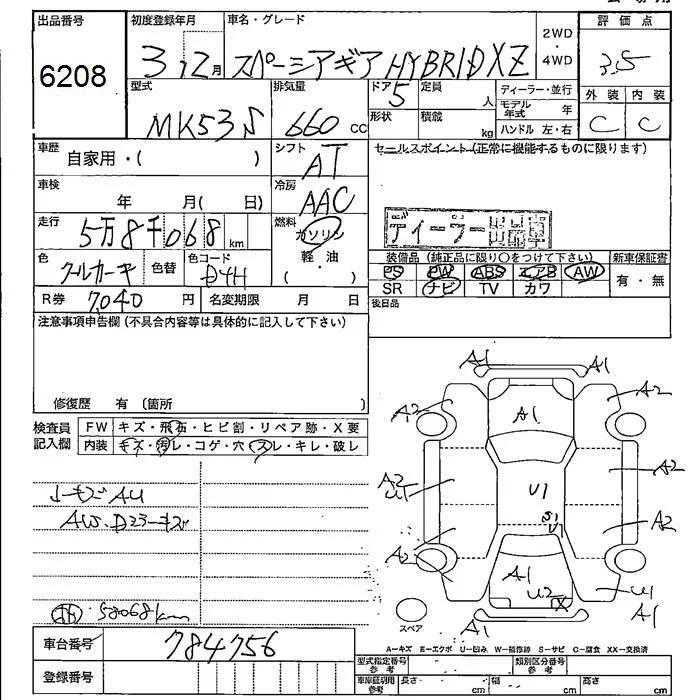 出品番号 初度登録年月 車名・グレード 2WD・4WD 評価点
6208 3 12月 スペーシアギア HYBRID XZ 3.5
型式 排気量 ドア 定員 ディーラー・並行 外装 内装
MK53S 660 CC 5 人 モデル年式 年 C C
形状 積載 kg ハンドル 左・右
車歴 自家用・( ) シフト AT セールスポイント(正常に機能するものに限ります)
車検 年 月( 日) 冷房 AAC
ディーラー
走行 5万8千068km 燃料 ガソリン
軽・油
( )
色 クールカーキ 色替 色コード D4H
装備品(純正品に限り○をつけて下さい) 新車保証書
PS PW ABS エアB AW 有・無
SR ナビ TV カワ
R券 7,040円 名変期限 月 日 後日品
注意事項申告欄(不具合内容等は具体的に記入して下さい)
修復歴 有(箇所 )
検査員記入欄 FW キズ・飛石・ヒビ割・リペア跡・X要
内装 キズ・汚レ・コゲ・穴・スレ・キレ・破レ
58068km
A1 A1
A2 A1 A2
A2 U1 U1 A2
S1 U1
A2 A2
A1 U2 X U1
A1 A1
スペア
A－キズ E－エクボ U－凹み W－補修跡 S－サビ C－腐食 XX－交換済
車台番号 784756
登録番号
型式指定番号 参考 類別区分番号 参考
車庫証明用 参考 長さ cm 幅 cm 高さ cm